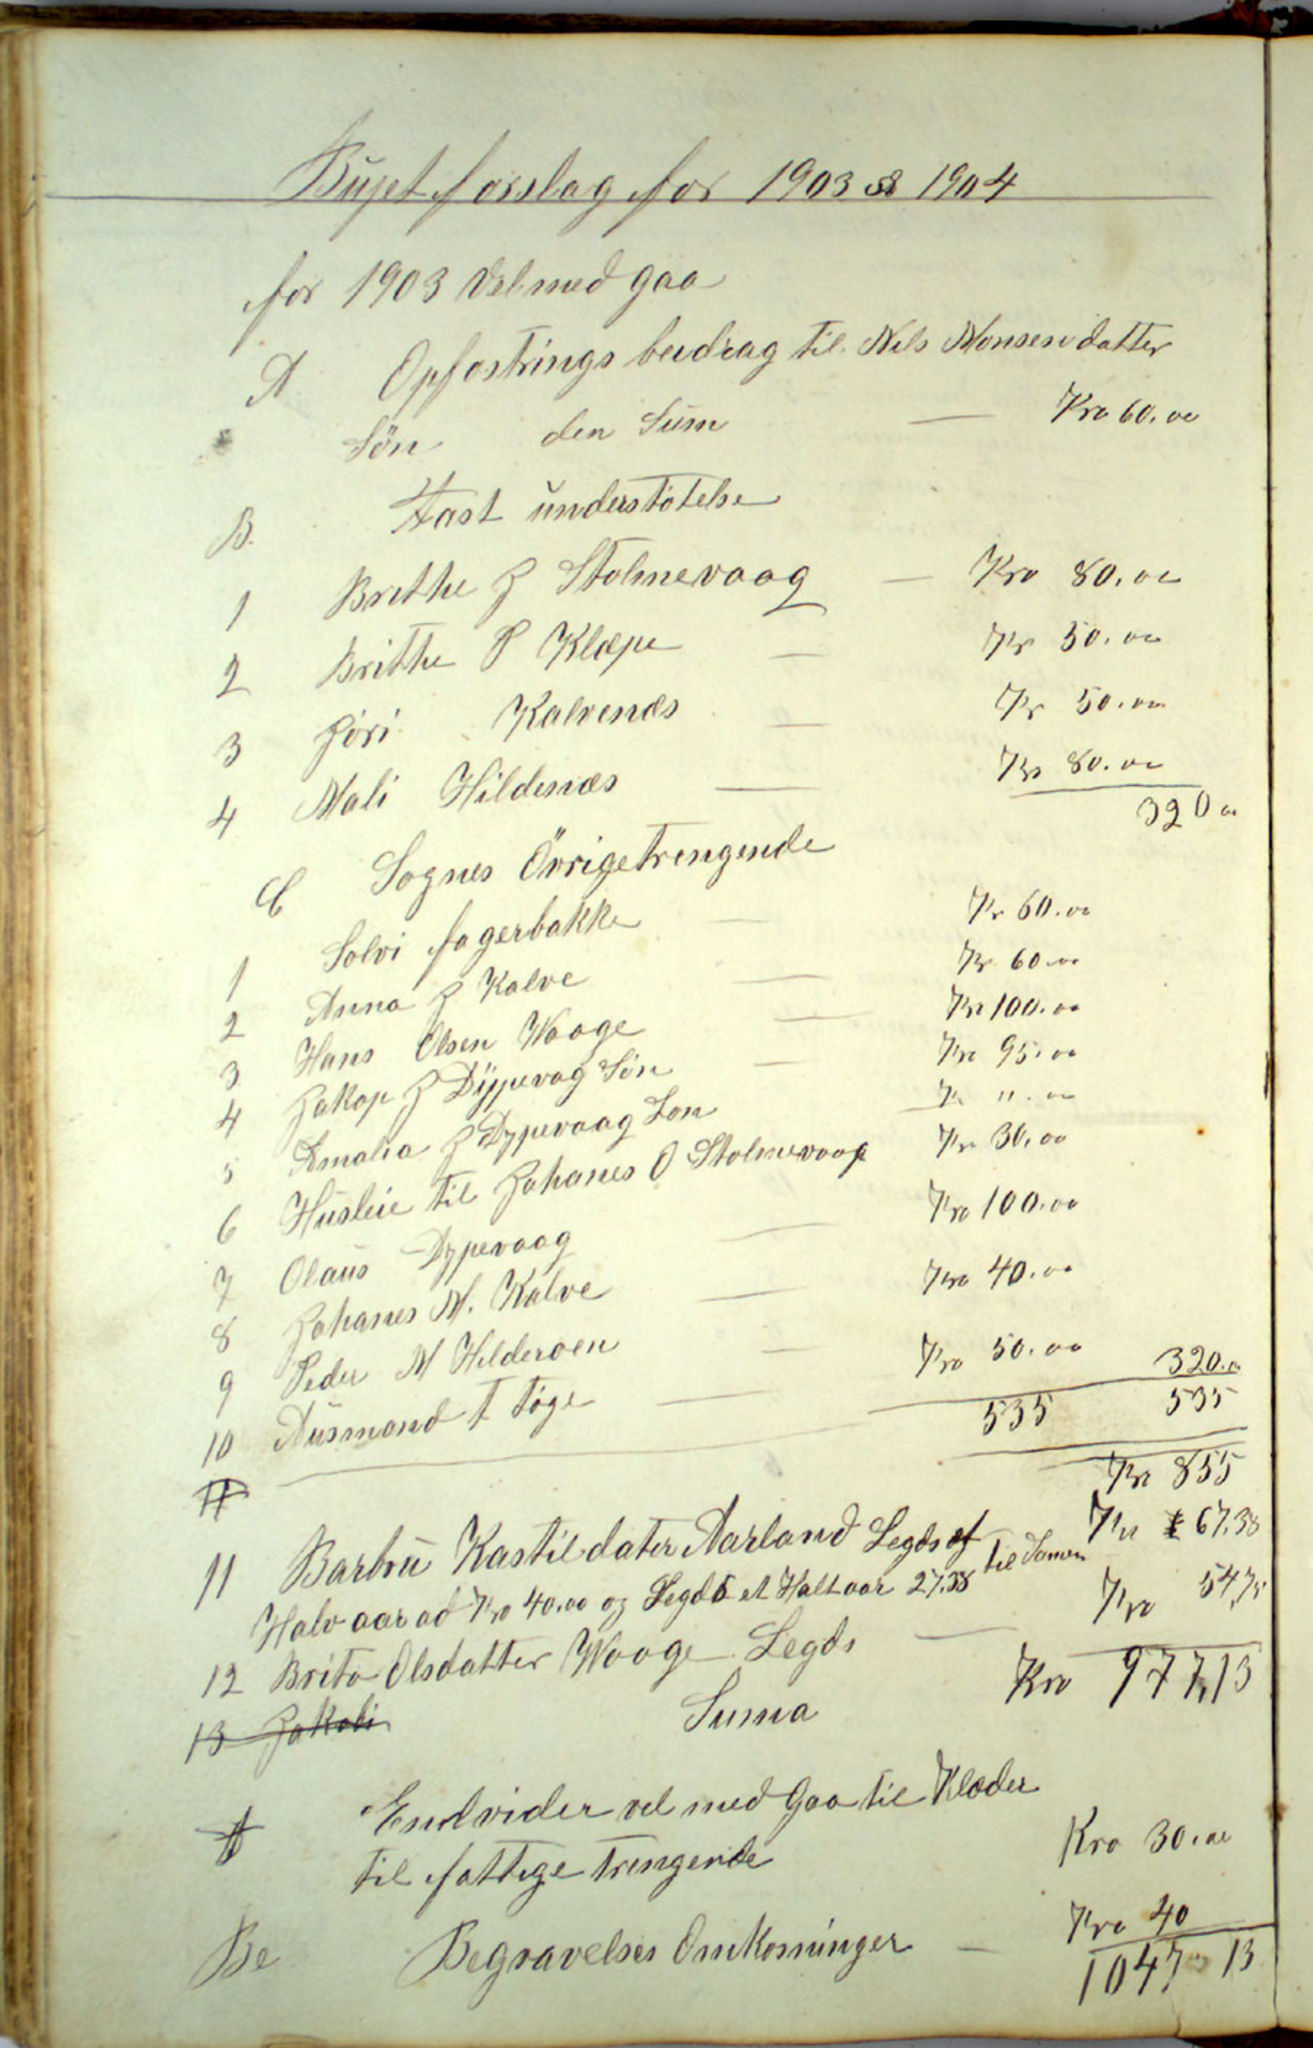 Bujet forslag for 1903 & 1904
for 1903 vel med gaa
A Opfostrings beidrag til Nils Monsens datter
Søn den Sum — Kro 60.00
B. Fast understøtelse
1 Brithe J Stolmevaag — Kro 80.00
2 Brithe P Klæpe — Kr 50.00
3 Jori Kalvenæs — Kr 50.00
4 Mali Hildenæs — Kr 80.00
320 00
C Sognes Övrige trengende
1 Solvi fagerbakke — Kr 60.00
2 Anna J Kalve — Kr 60.00
3 Hans Olsen Waage — Kr 100.00
4 Jakop J Dypevag Søn — Kr 95.00
5 Amalia J Dypevaag Son Kr ".00
6 Husleie til Johanes O Stolmevaag Kr 30.00
7 Olaus Dypevaag — Kro 100.00
8 Johanes M. Kalve — Kro 40.00
9 Peder M Hilderoen — Kro 50.00 320.00
10 Ausmand T Töge — 535 535
11 Kr 855
11 Barbru Kastildater Aarland Legds et til Samen Kr 67.38
Halv aar ad Kro 40.00 og Legds et Halt aar 27.38 Kro 54,75
12 Brita Olsdatter Waage Legds —
13 Jakobi Suma Kro 977,13
A Endvider vel med Gaa til Klæder
til fattige trengende Kro 30.00
Be Begravelses Omkosninger — Kro 40
1047 13